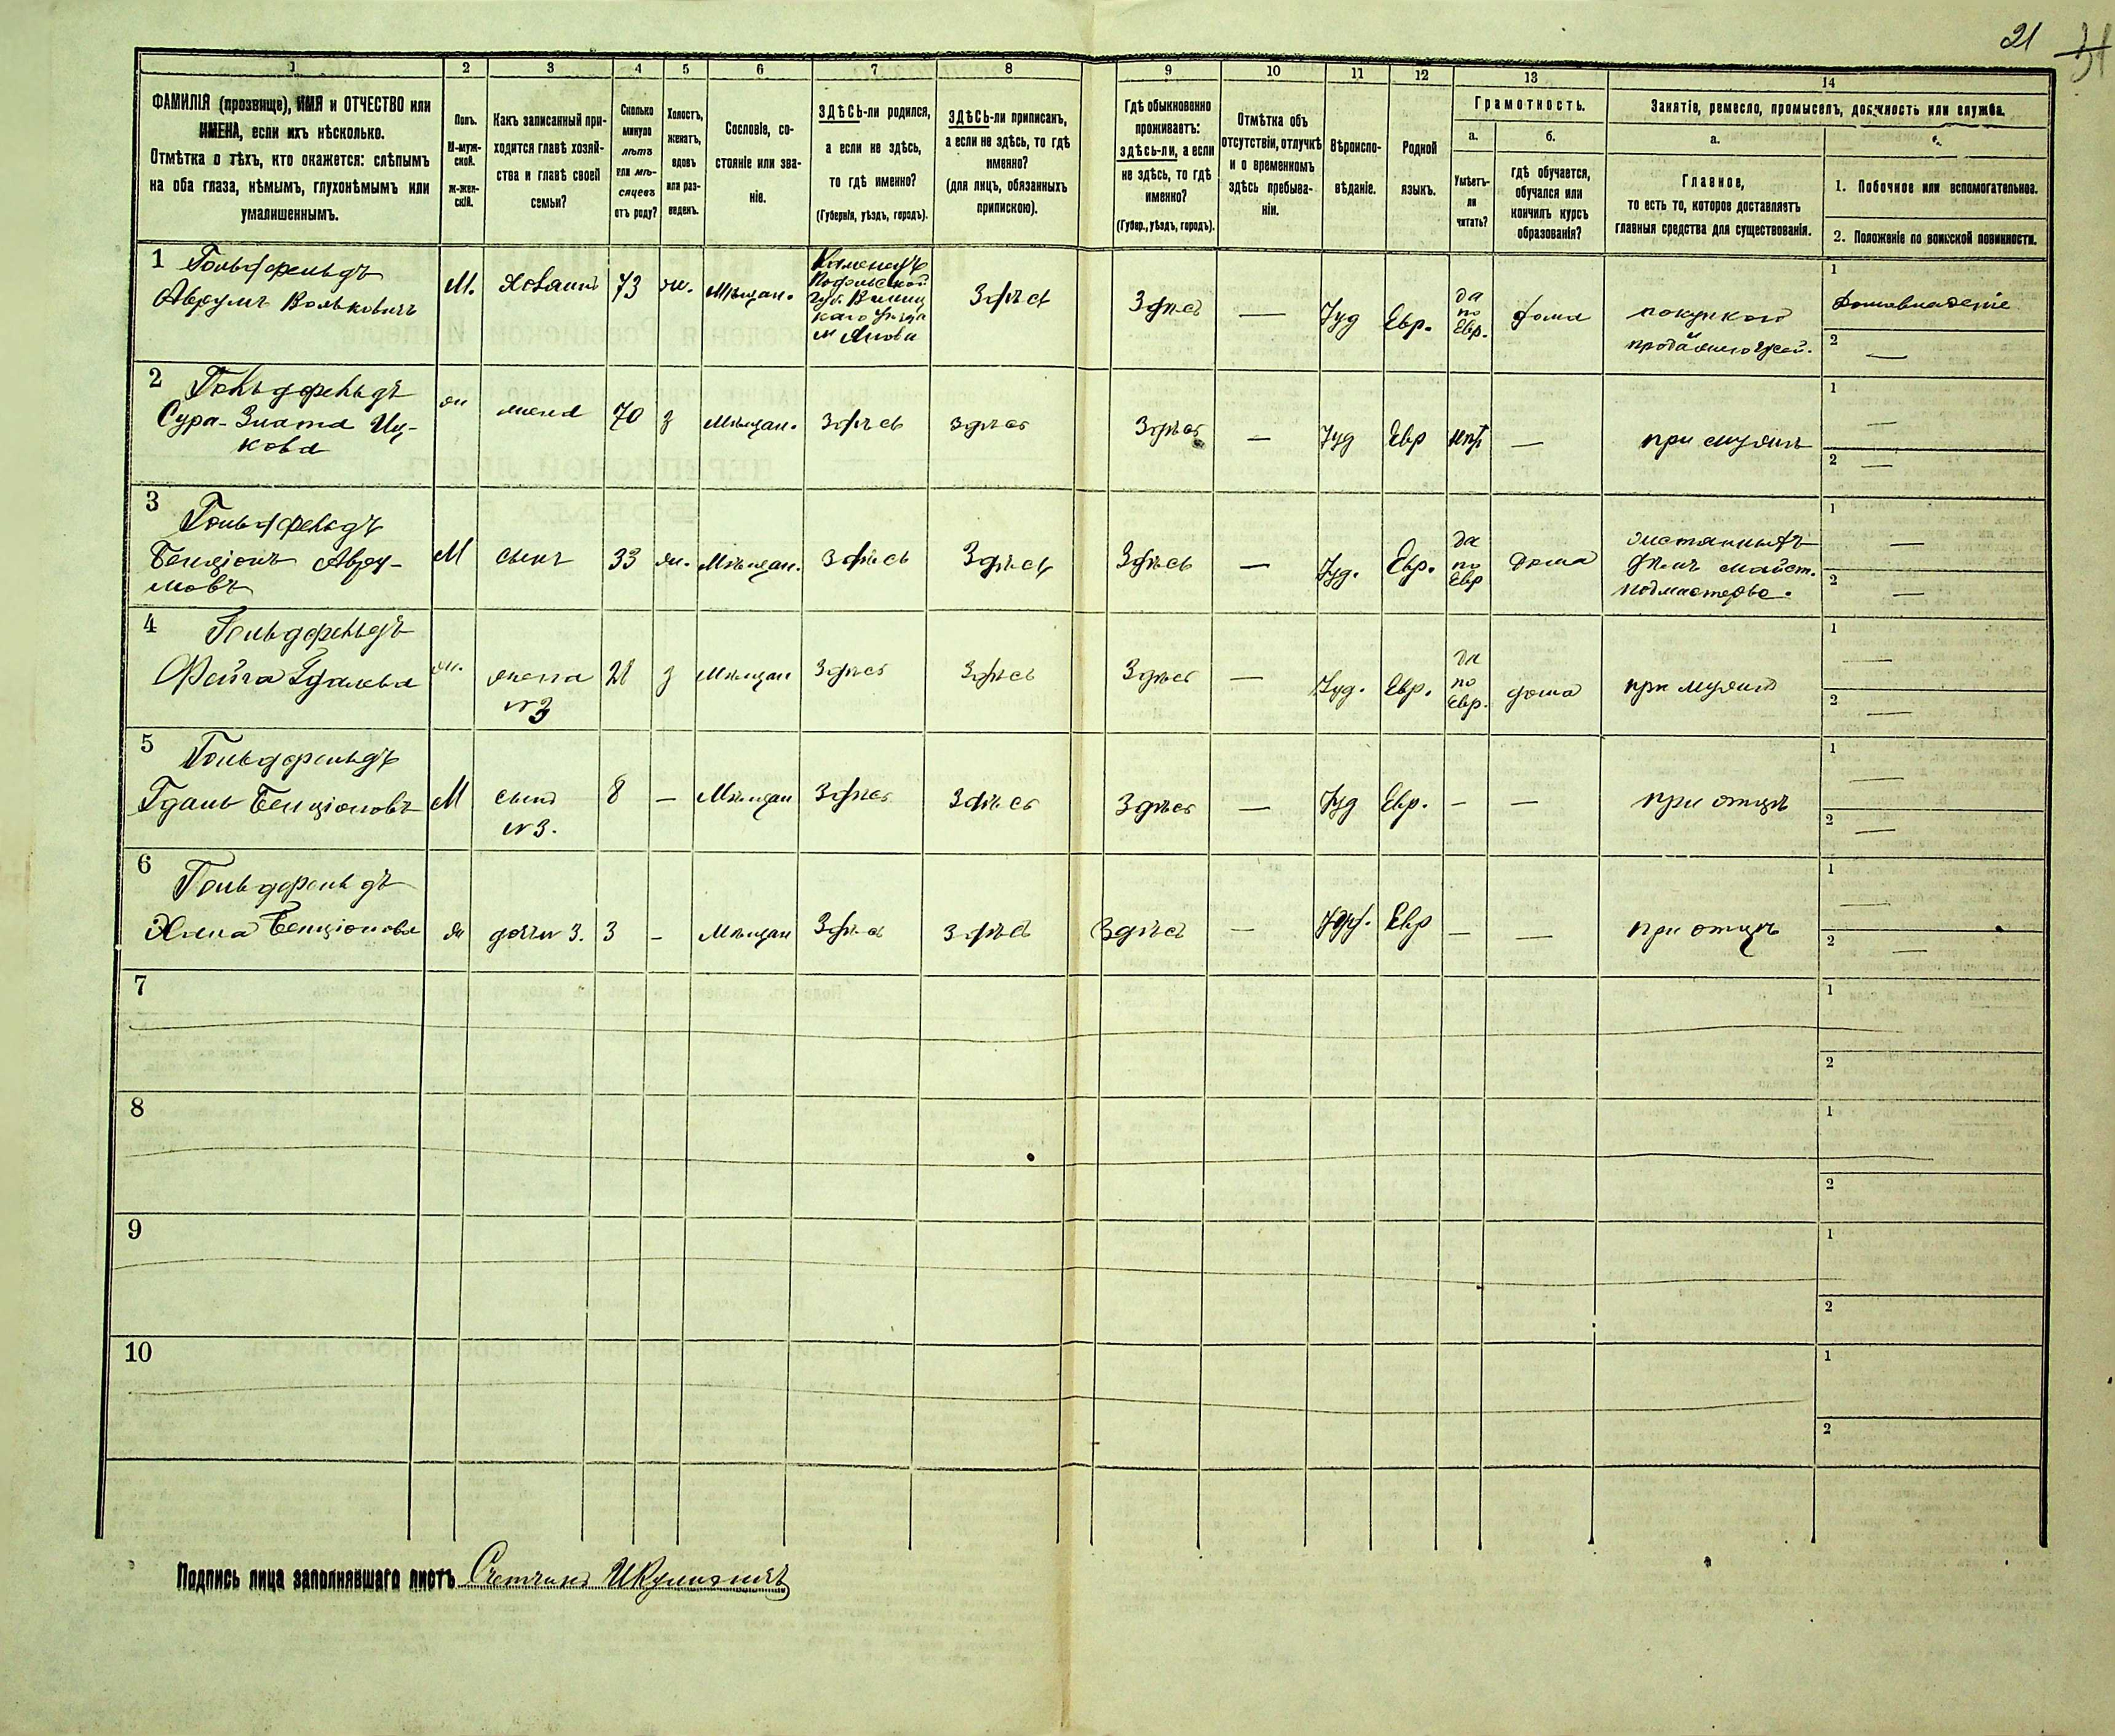 21 31
1 2 3 4 5 6 7 8 9 10 11 12 13 14
ФАМИЛІЯ (прозвище), ИМЯ и ОТЧЕСТВО или
ИМЕНА, если ихъ нѣсколько.
Отмѣтка о тѣхъ, кто окажется: слѣпымъ
на оба глаза, нѣмымъ, глухонѣмымъ или
умалишеннымъ.
Полъ.
М-муж-
ской.
Ж-жен-
скій.
Какъ записанный при-
ходится главѣ хозяй-
ства и главѣ своей
семьи?
Сколько
минуло
лѣтъ
или мѣ-
сяцевъ
отъ роду?
Холостъ,
женатъ,
вдовъ
или раз-
веденъ.
Сословіе, со-
стояніе или зва-
ніе.
ЗДѢСЬ-ли родился,
а если не здѣсь,
то гдѣ именно?
(Губернія, уѣздъ, городъ).
ЗДѢСЬ-ли приписанъ,
а если не здѣсь, то гдѣ
именно?
(для лицъ, обязанныхъ
припискою).
Гдѣ обыкновенно
проживаетъ:
здѣсь-ли, а если
не здѣсь, то гдѣ
именно?
(Губер., уѣздъ, городъ).
Отмѣтка объ
отсутствіи, отлучкѣ
и о временномъ
здѣсь пребыва-
ніи.
Вѣроиспо-
вѣданіе.
Родной
языкъ.
Грамотность.
а.
Умѣетъ-
ли
читать?
б.
гдѣ обучается,
обучался или
кончилъ курсъ
образованія?
Занятіе, ремесло, промыселъ, должность или служба.
а.
Главное,
то есть то, которое доставляетъ
главныя средства для существованія.
1. Побочное или вспомогательное.
2. Положеніе по воинской повинности.
1 Гольдфельдъ
Аврумъ Вольковичъ
М.
Хозяинъ
73
ж.
Мѣщан.
Каменецъ
Подольской
губ. Винниц
каго уѣзда
м Янова
Здѣсь
Здѣсь
—
Іуд
Евр.
да
по
Евр.
дома
покупкой
и
продажею
1
Домовладеніе
2 —
2 Гольдфельдъ
Сура-Злата Иц-
кова
ж
жена
70
з
Мѣщан.
здѣсь
здѣсь
Здѣсь
—
Іуд
Евр
нѣт
—
при мужѣ
1 —
2 —
3 Гольдфельдъ
Бенціонъ Авру-
мовъ
М
сынъ
33
ж.
Мѣщан.
здѣсь
Здѣсь
Здѣсь
—
Іуд.
Евр.
да
по
Евр
дома
жестяныхъ
дѣлъ майст.
подмастерье.
1 —
2 —
4 Гольдфельдъ
Фейга Гдалева
ж.
жена
№3
28
з
Мѣщан
Здѣсь
Здѣсь
Здѣсь
—
Іуд.
Евр.
да
по
Евр.
дома
при мужѣ
1 —
2 —
5 Гольдфельдъ
Гдаль Бенціоновъ
М
сынъ
№3.
8
—
Мѣщан
Здѣсь
Здѣсь
Здѣсь
—
Іуд
Евр.
—
—
при отцѣ
1 —
2 —
6 Гольдфельдъ
Хана Бенціонова
ж
дочь №3.
3
—
Мѣщан
Здѣсь
Здѣсь
Здѣсь
—
Іуд.
Евр
—
—
при отцѣ
1 —
2 —
7
1
2
8
1
2
9
1
2
10
1
2
Подпись лица заполнявшаго листъ Счетчикъ